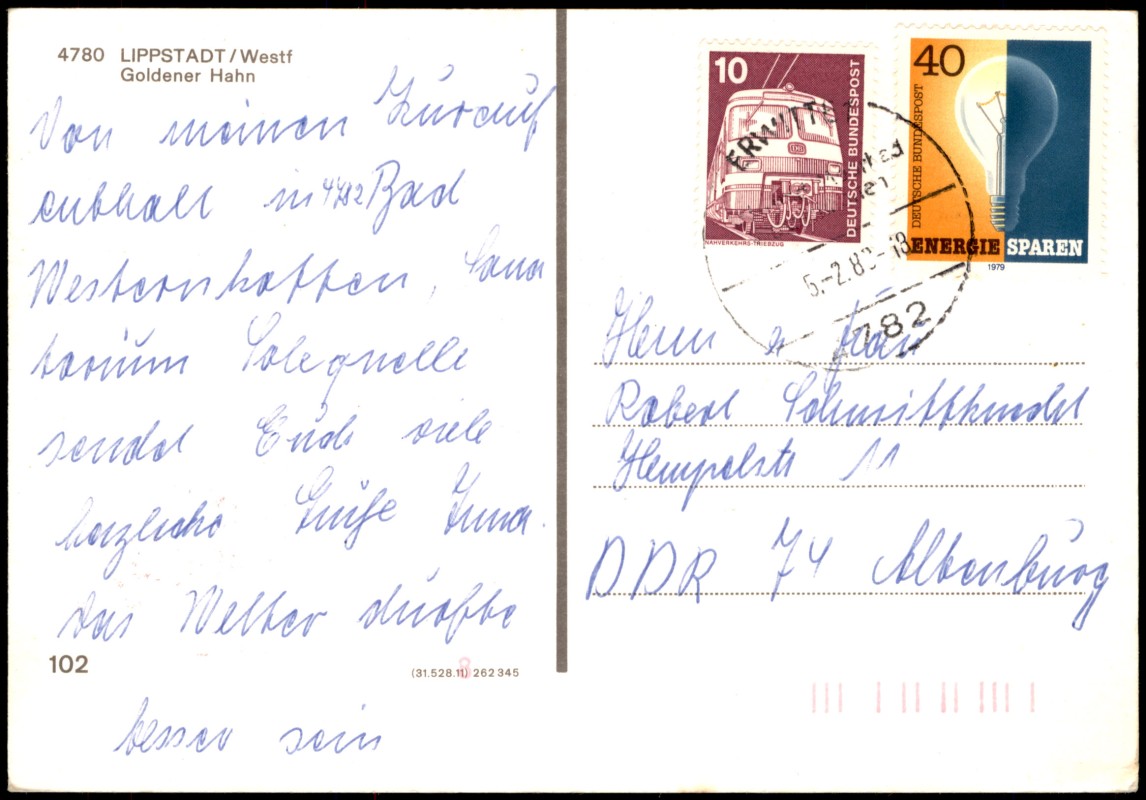 4780 LIPPSTADT/Westf
Goldener Hahn
Von meinen Kurauf
enthalt in 4782 Bad
Westernkotten, Sana
torium Solequelle
sendet Euch viele
herzliche Grüße Inna.
Das Wetter dürfte
102
(31.528.11) 262 345
8
besser sein
10
DEUTSCHE BUNDESPOST
NAHVERKEHRS-TRIEBZUG
40
DEUTSCHE BUNDESPOST
ENERGIE SPAREN
1979
ERWITTE 1
5.-2.8
-18
4782
Herrn u Frau
Robert Schmittknecht
Hempelstr 11
DDR 74 Altenburg